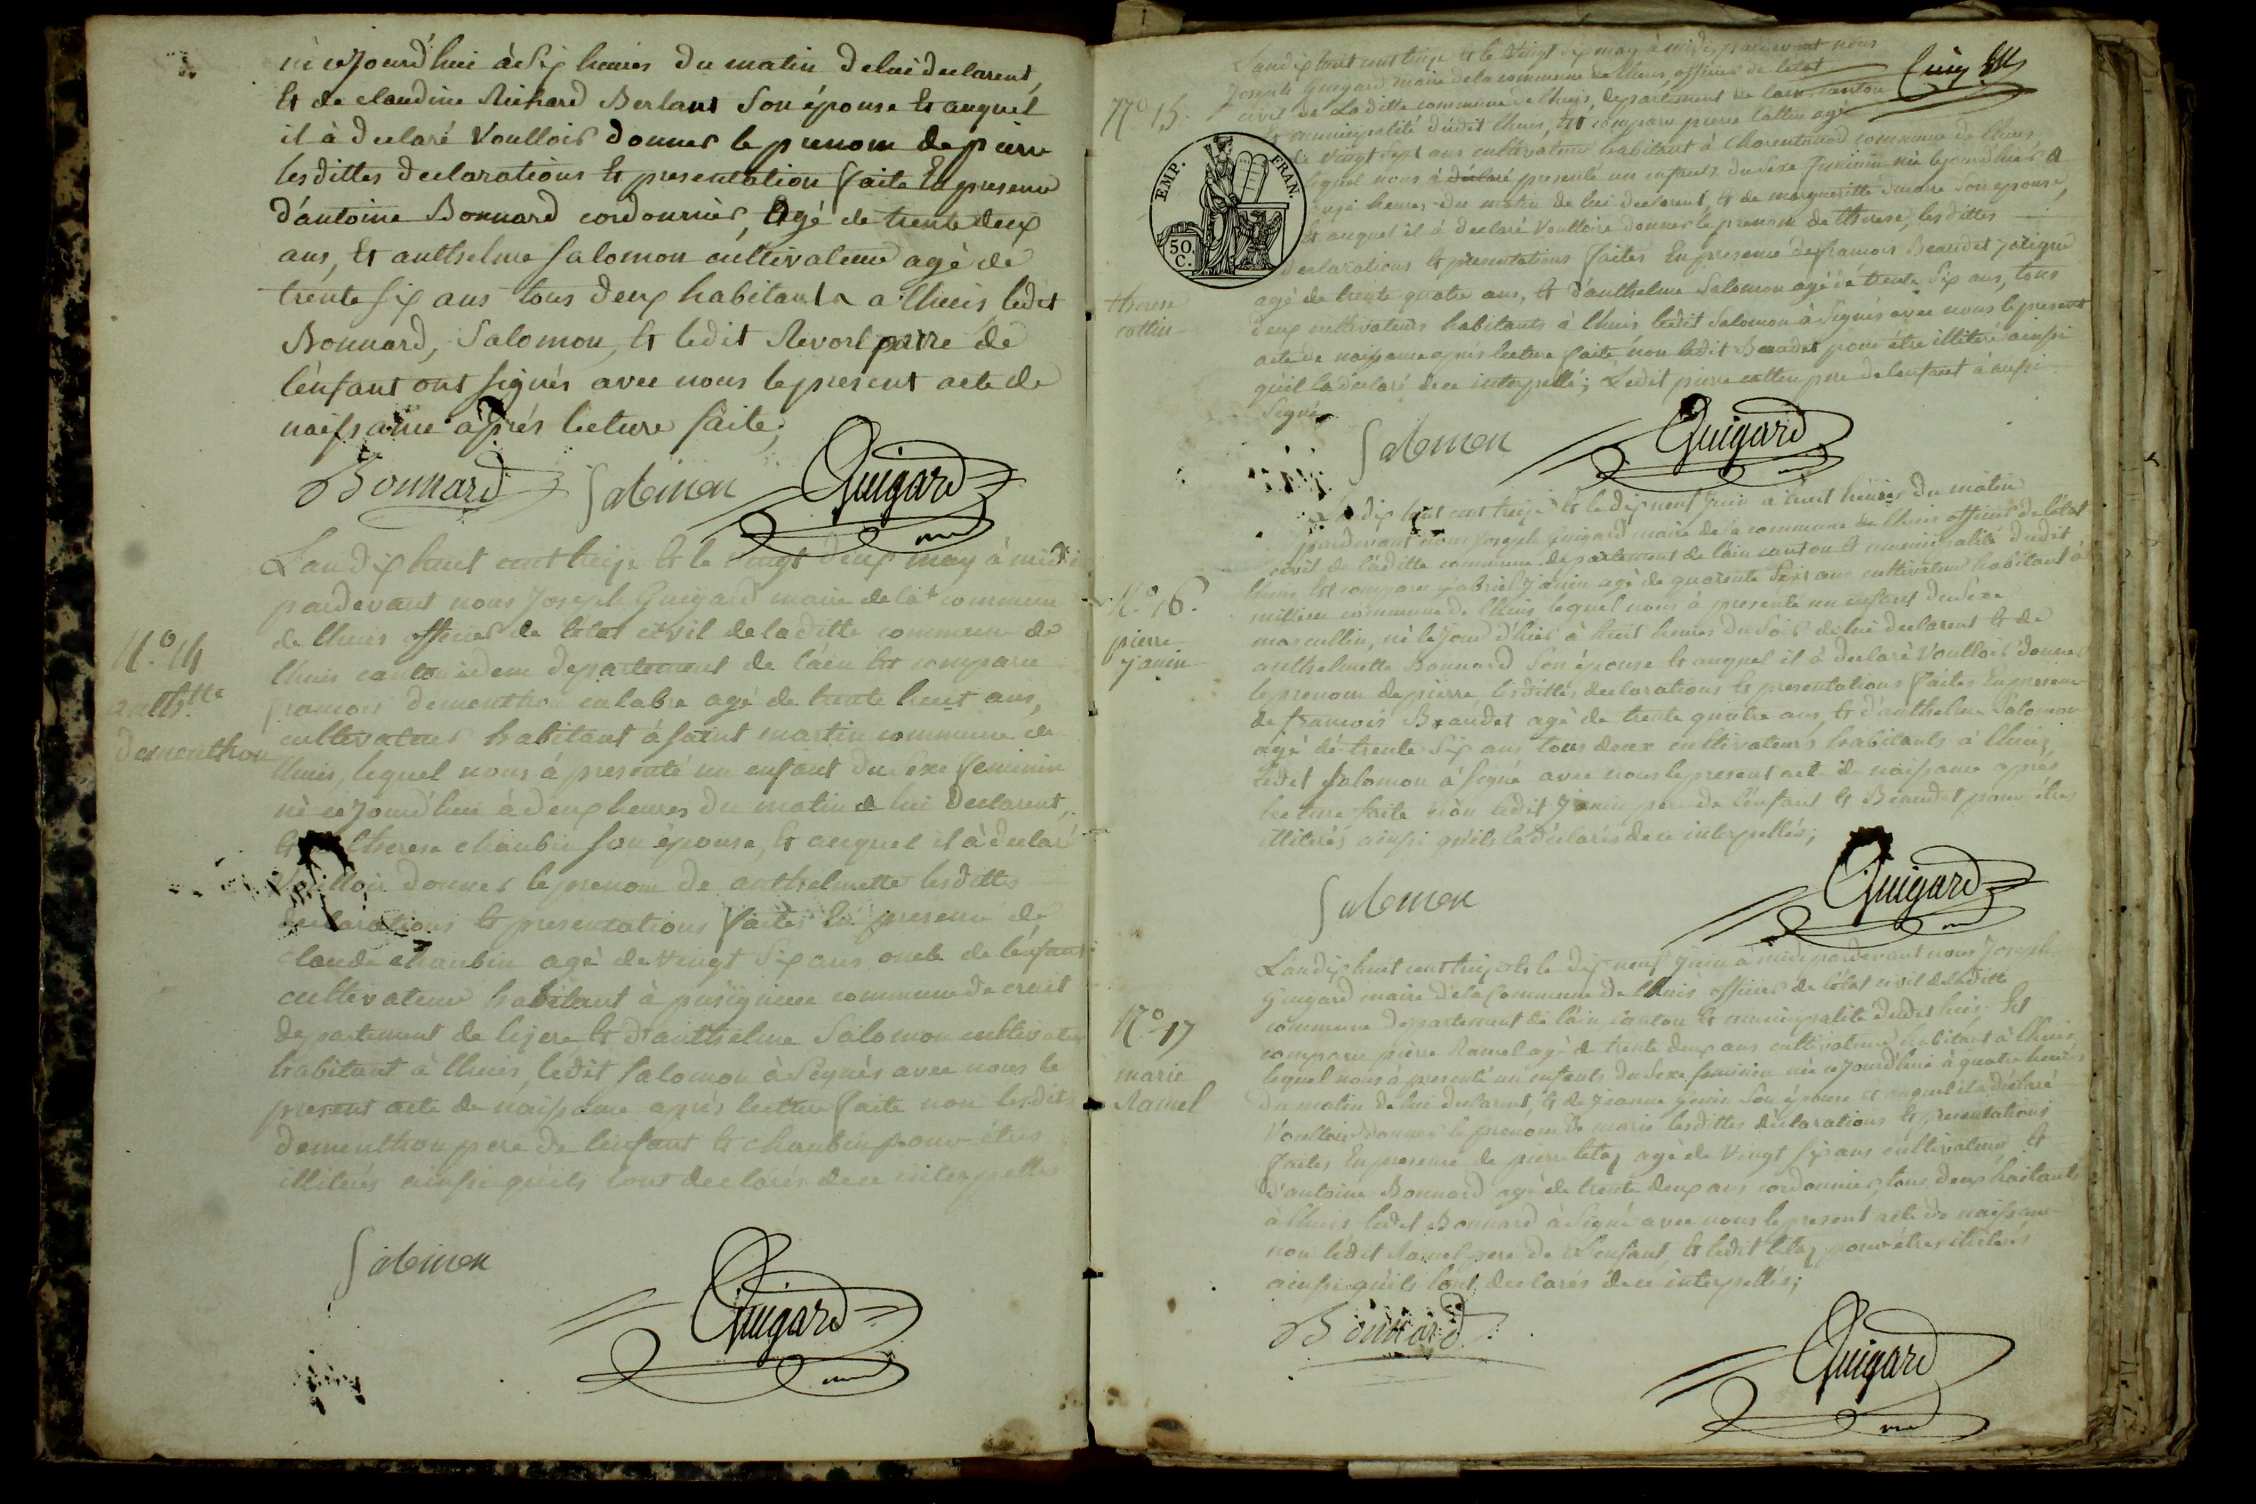 né cejourd'hui à Six heures du matin de lui declarent,
Et de claudine Richard Berland Son épouse Et auquel
il à declaré Voulloir donner le prenom de pierre
lesdittes declarations Et presentation faite En presence
d'antoine Bonnard cordonnier, Agé de trente deux
ans, Et anthelme Salomon cultivateur agé de
trente six ans tous deux habitants a lhuis, ledit
Bonnard, Salomon, Et ledit Revol pere de
l'enfant ont signés avec nous le present acte de
naissance aprés lecture faite;
Bonnard Salomon Guigard
L'an dix huit cent treize Et le vingt deux may à midi
pardevant nous Joseph Guigard maire de la commune
de lhuis officier de l'etat civil de laditte commune de
lhuis canton idem departement de l'ain Est comparu
N.o 14
anth.tte
dementhon
francois dementhon agé de trente huit ans,
cultivateur habitant à saint martin commune de
lhuis, lequel nous à presenté un enfant du sexe feminin
né cejourd'hui à deux heures du matin de lui declarent,
Et therese chaubin son épouse, Et auquel il à declaré
Voulloir donner le prenom de anthelmette lesdittes
declarations Et presentations faites En presence de
claude chaubin agé de vingt Six ans oncle de l'enfant
cultivateur habitant à commune de
departement de lizere Et d'anthelme Salomon cultivateur
habitant à lhuis, ledit Salomon à Signés avec nous le
present acte de naissance aprés lecture faite non lesdits
dementhon pere de l'enfant Et chaubin pour étres
illiterés ainsi qu'ils l'ont declarés de ce interpellés
Salomon Guigard
L'an dix huit cent treize Et le vingt Six may à midi, pardevant nous
Joseph Guigard maire de la commune de lhuis, officier de l'etat
N.o 15.
civil de Laditte commune de lhuis, departement de l'ain canton
Et municipalité dudit lhuis, Est comparu pierre cottin agé
EMP. FRAN.
50. C.
de vingt Sept ans cultivateur habitant à Charentenod commune de lhuis
lequel nous à declaré presenté un enfant du Sexe feminin née le jour d'hier à
heures du matin de lui declarent, Et de margueritte Son épouse,
Et auquel il à declaré Voulloir donner le prenom de therese, lesdittes
declarations Et presentations faites En presence de francois Beaudet
therese
cottin
agé de trente quatre ans, Et d'anthelme Salomon agé de trente Six ans, tous
deux cultivateurs habitants à lhuis ledit Salomon à Signés avec nous le present
acte de naissance aprés lecture faite, non ledit Beaudet pour étre illiteré ainssi
qu'il l'a declaré de ce interpellé; Ledit pierre cottin pere de l'enfant à aussi
Signé
Salomon Guigard
L'an dix huit cent treize Et le dix neuf Juin à huit heures du matin
pardevant nous Joseph Guigard maire de la commune de lhuis officier de l'etat
civil de laditte commune departement de l'ain canton Et municipalité dudit
N.o 16.
pierre
Janin
lhuis, Est comparu gabriel Janin agé de quarente Sept ans cultivateur habitant à
commune de lhuis, lequel nous à presenté un enfant du Sexe
mascullin, né le jour d'hier à huit heures du Soir de lui declarent Et de
anthelmette Bonnard Son épouse Et auquel il à declaré Voulloir donner
le prenom de pierre, lesdittes declarations Et presentations faites En presence
de francois Beaudet agé de trente quatre ans, Et d'anthelme Salomon
agé de trente Six ans tous deux cultivateurs habitants à lhuis,
ledit Salomon à Signé avec nous le present acte de naissance aprés
lecture faite non ledit Janin pere de l'enfant Et Beaudet pour étres
illiterés ainssi qu'ils l'a declarés de ce interpellés;
Salomon Guigard
L'an dix huit cent treize Et le dix neuf Juin à midi pardevant nous Joseph
Guigard maire de la Commune de lhuis officier de l'etat civil de laditte
N.o 17
marie
Ramel
commune departement de l'ain canton Et municipalité dudit lhuis, Est
comparu pierre Ramel agé de trente deux ans cultivateur habitant à lhuis,
lequel nous à presenté un enfants du Sexe feminin née cejourd'hui à quatre heures
du matin de lui declarent, Et de Jeanne Son épouse et auquel il a declaré
Voulloir donner le prenom de marie lesdittes declarations Et presentations
faites En presence de pierre agé de Vingt Six ans cultivateur Et
d'antoine Bonnard agé de trente deux ans cordonnier, tous deux habitants
à lhuis ledit Bonnard à Signé avec nous le present acte de naissance
non ledit Ramel pere de l'enfant, Et ledit pour étres illiterés
ainssi qu'ils l'ont declarés de ce interpellés;
Bonnard Guigard